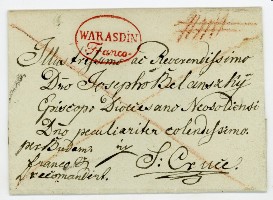 WARASDIN
Franco
Illustrissimo ac Reverendissimo
Dño Josepho Belanszky
Episcopo Dioecesano Neosoliensi
Dño peculiariter colendissimo.
per Budam
franco
recomandirt.
S: Cruce